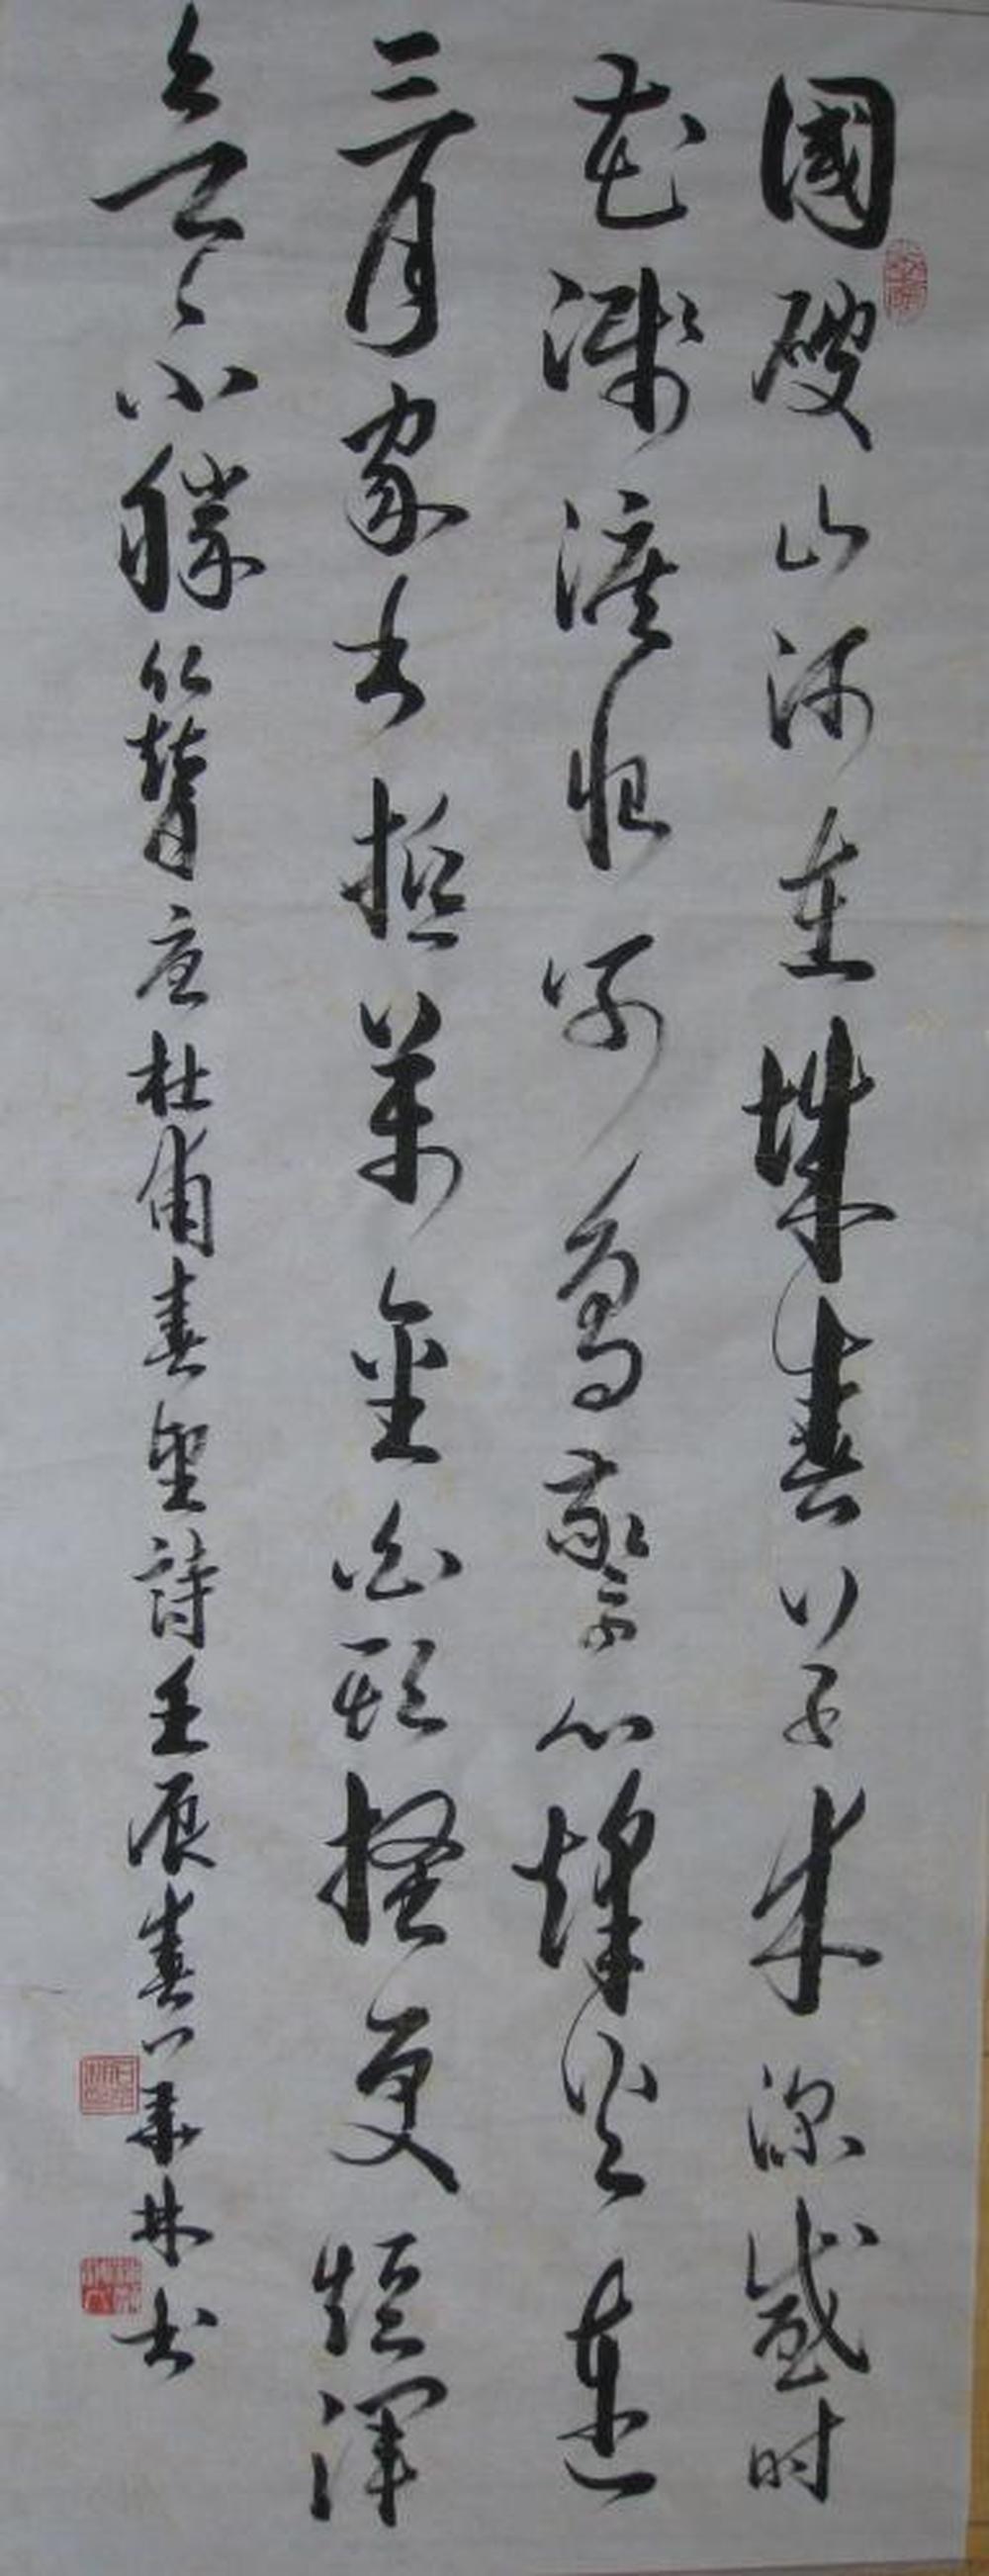 國破山河在城春草木深感时
花濺淚恨別鳥驚心烽火連
三月家书抵萬金白頭搔更短渾
欲不勝簪唐杜甫春望詩壬辰春林书